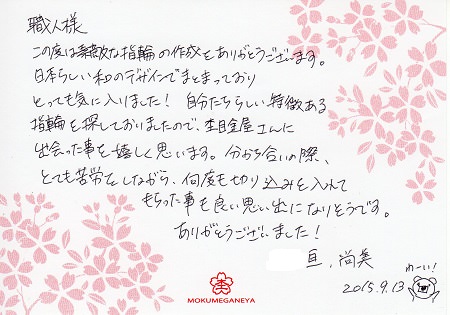 職人様
この度は素敵な指輪の作成をありがとうございます。
日本らしい和のデザインでまとまっており
とっても気に入りました！ 自分たちらしい特徴ある
指輪を探しておりましたので、杢目金屋さんに
出会った事を嬉しく思います。分かち合いの際、
とても苦労をしながら、何度も切り込みを入れて
もらった事も良い思い出になりそうです。
ありがとうございました！
亘、尚美
わーい！
2015.9.13
杢
MOKUMEGANEYA